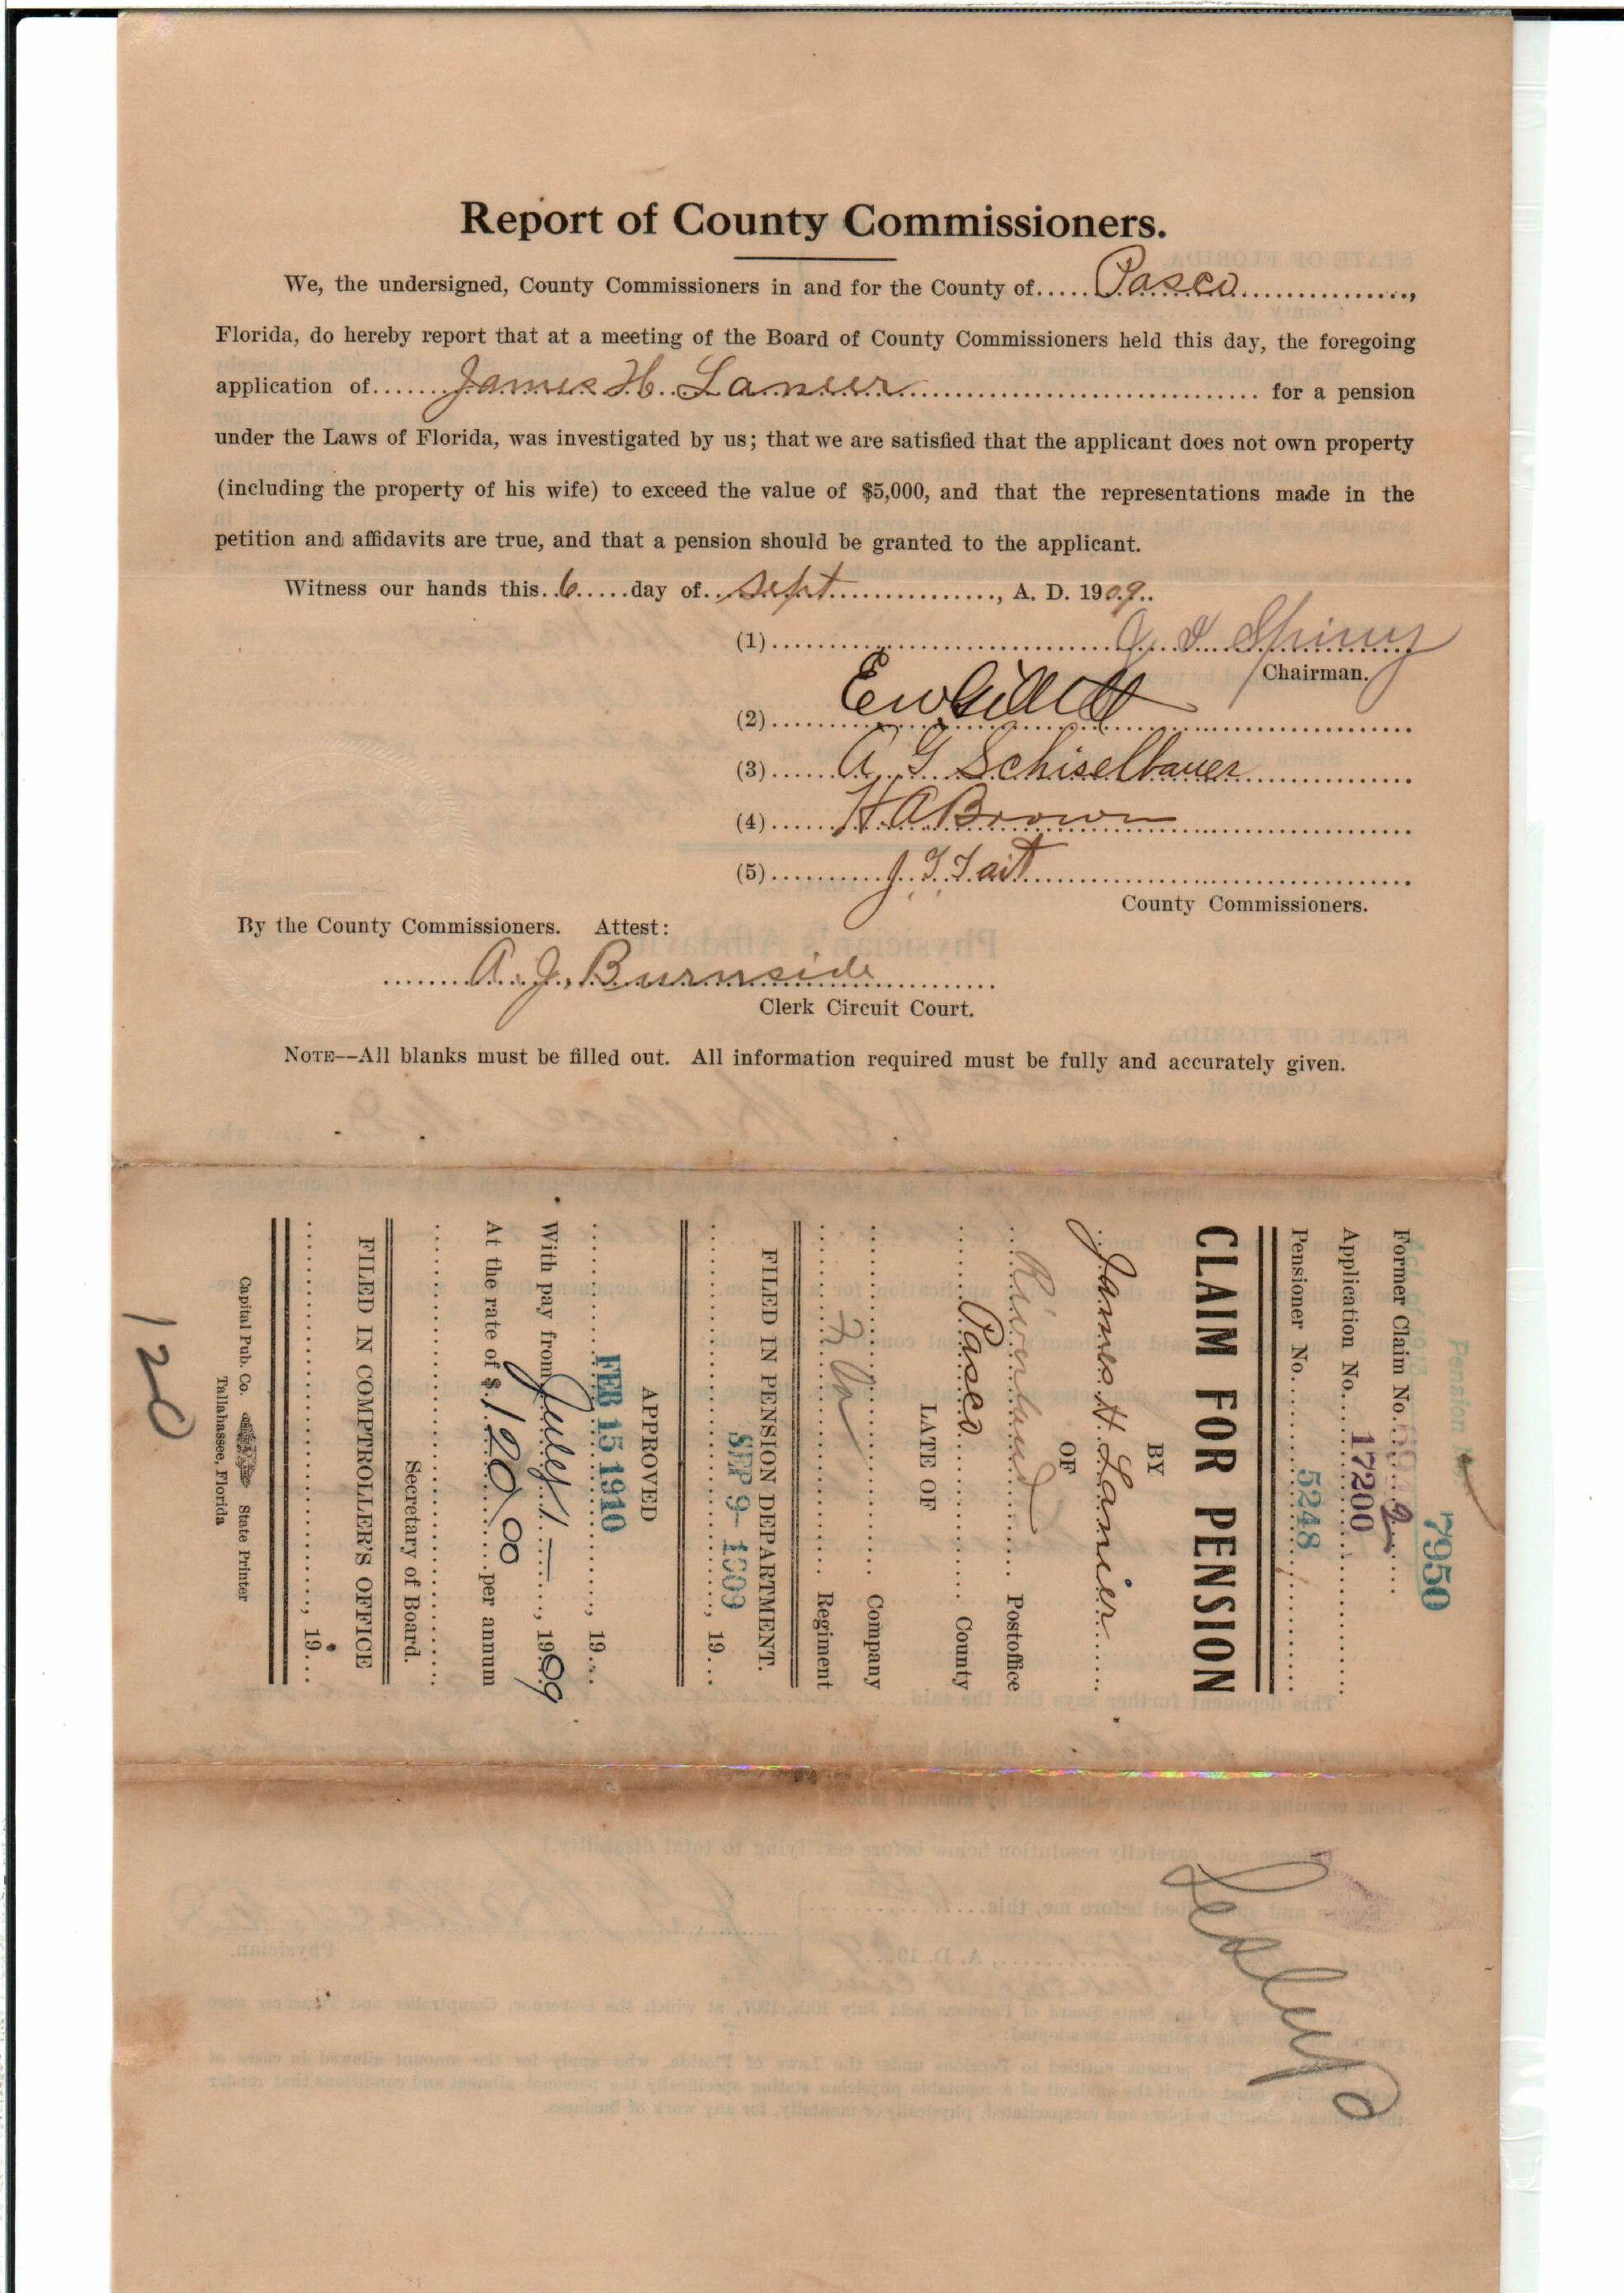 Report of County Commissioners.
We, the undersigned, County Commissioners in and for the County of..... Pasco ................,
Florida, do hereby report that at a meeting of the Board of County Commissioners held this day, the foregoing
application of...... James H. Lanier .................................... for a pension
under the Laws of Florida, was investigated by us; that we are satisfied that the applicant does not own property
(including the property of his wife) to exceed the value of $5,000, and that the representations made in the
petition and affidavits are true, and that a pension should be granted to the applicant.
Witness our hands this..6.....day of..Sept................., A. D. 1909..
(1)
Chairman.
(2) E W Gillett
(3) A G Schiselbauer
(4) H A Brown
(5) J. T. Tait
County Commissioners.
By the County Commissioners. Attest:
A. J. Burnside
Clerk Circuit Court.
NOTE--All blanks must be filled out. All information required must be fully and accurately given.
7950
Former Claim No.
Application No. 17200
Pensioner No. 5248
CLAIM FOR PENSION
BY
James H. Lanier
OF
Postoffice
Pasco County
LATE OF
Company
Regiment
FILED IN PENSION DEPARTMENT.
SEP 9- 1909 , 19...
APPROVED
FEB 15 1910 , 19...
With pay from July 1 — , 1909
At the rate of $ 120.00 per annum
Secretary of Board.
FILED IN COMPTROLLER'S OFFICE
, 19...
Capital Pub. Co. State Printer
Tallahassee, Florida
120